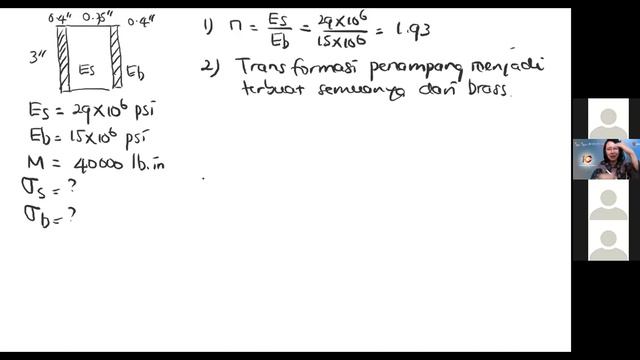 0.4" 0.75" 0.4"
3"
Es
Eb
Es = 29×10⁶ psi
Eb = 15×10⁶ psi
M = 40000 lb.in
σs = ?
σb = ?
1) n = Es/Eb = 29×10⁶/15×10⁶ = 1.93
2) Transformasi penampang menjadi
terbuat semuanya dari brass.